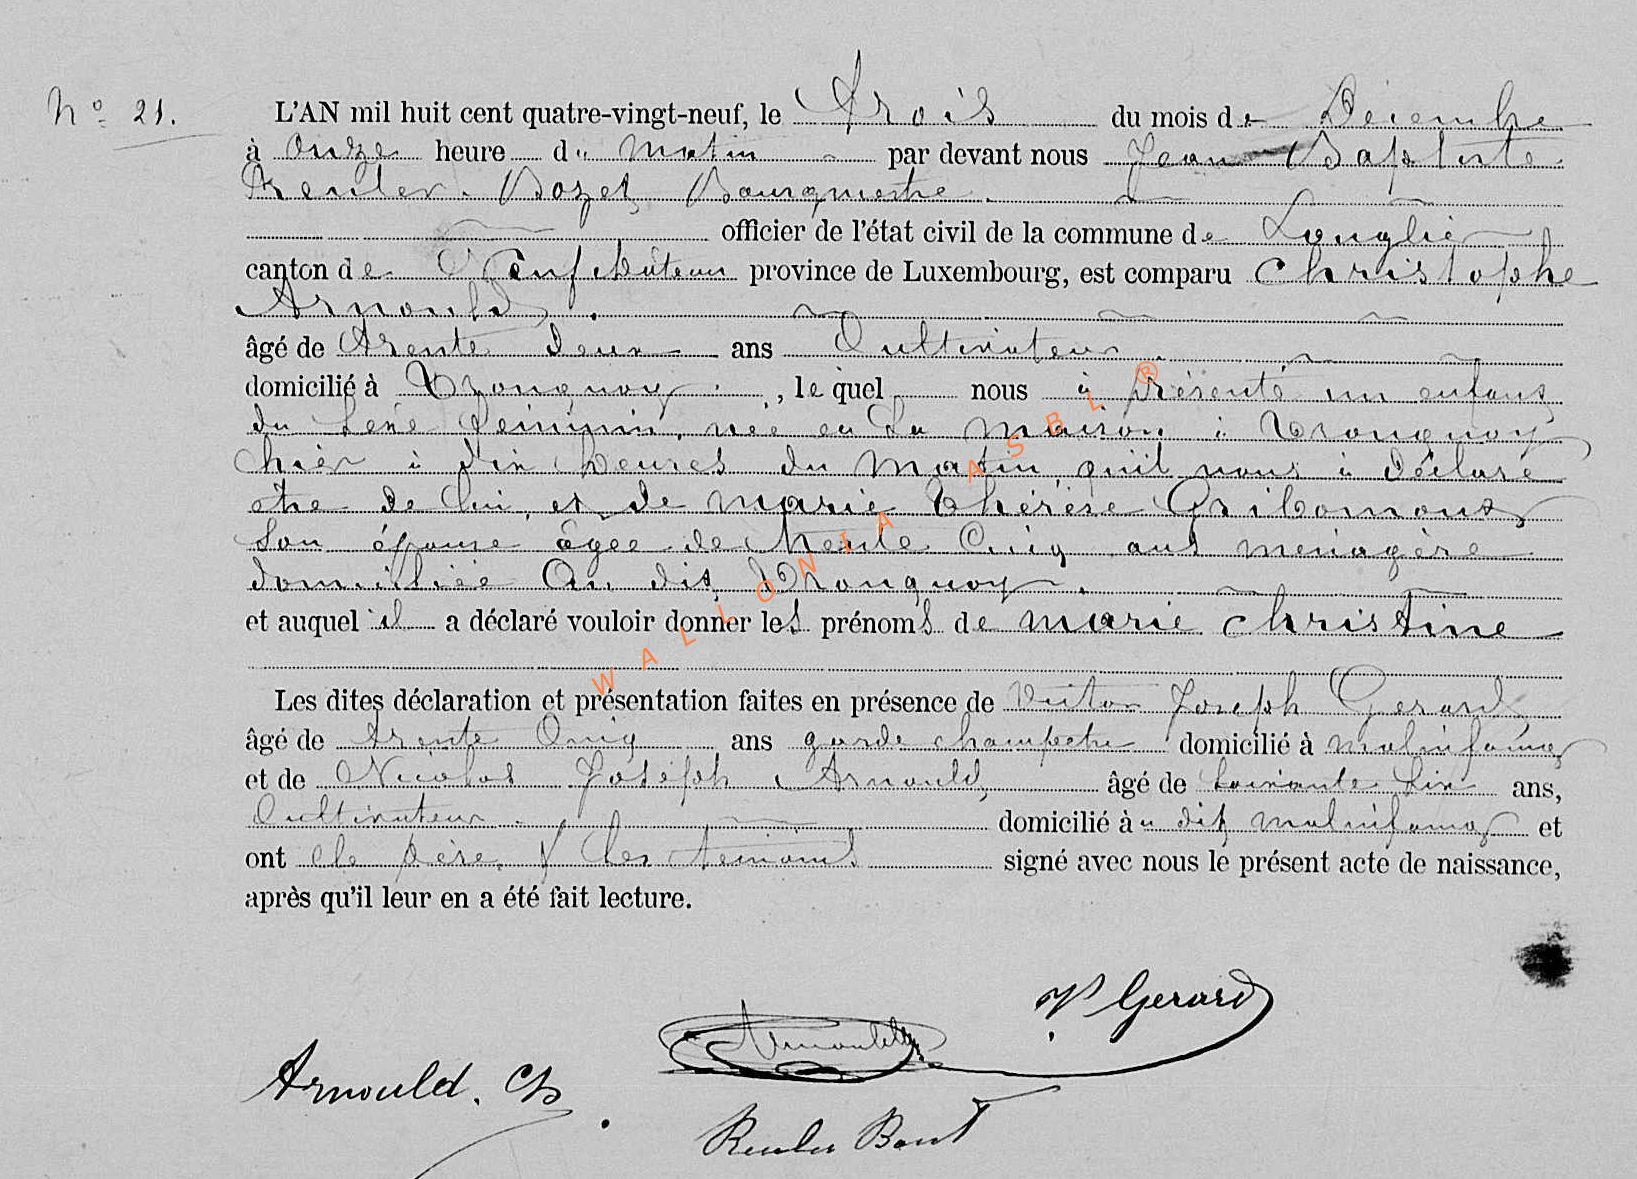 N° 21.
L'AN mil huit cent quatre-vingt-neuf, le Trois du mois de Décembre
à Onze heure du Matin par devant nous Jean Baptiste
Reuler. Bozet Bourgmestre.
officier de l'état civil de la commune de Longlier
canton de Neufchâteau province de Luxembourg, est comparu Christophe
Arnould.
âgé de Trente Deux ans Cultivateur.
domicilié à Tronquoy, lequel nous à présenté un enfant
du sexe féminin, née en sa maison à Tronquoy
hier à dix heures du Matin, qu'il nous à déclaré
être de lui, et de Marie Thérèse Gribomont
Son épouse âgée de trente Cinq ans ménagère
domiciliée Au dit Tronquoy.
et auquel il a déclaré vouloir donner les prénoms de Marie Christine
Les dites déclaration et présentation faites en présence de Victor Joseph Gerard
âgé de Trente Cinq ans garde champetre domicilié à Molinfaing
et de Nicolas Joseph Arnould, âgé de Soixante Six ans,
Cultivateur. domicilié à u dit Molinfaing et
ont le père & les témoins signé avec nous le présent acte de naissance,
après qu'il leur en a été fait lecture.
V J Gerard
Arnould
Arnould. Ch
Reuler Bozet
WALLONIA ASBL ®